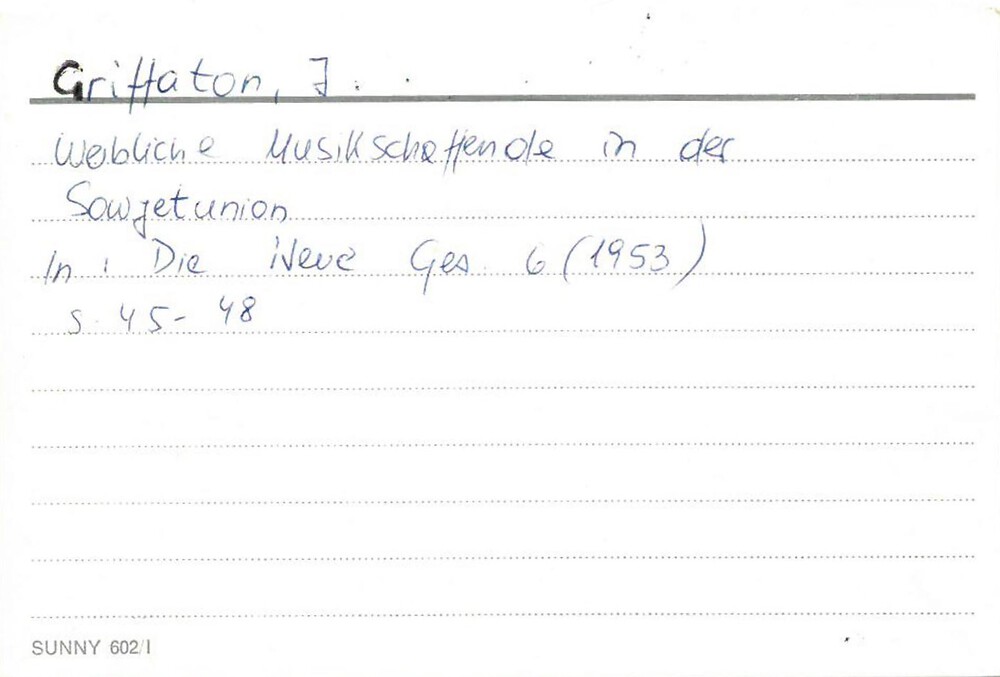 Griffaton, J.
Weibliche Musikschaffende in der
Sowjetunion
In: Die Neue Ges. 6 (1953)
S. 45-48
SUNNY 602/I